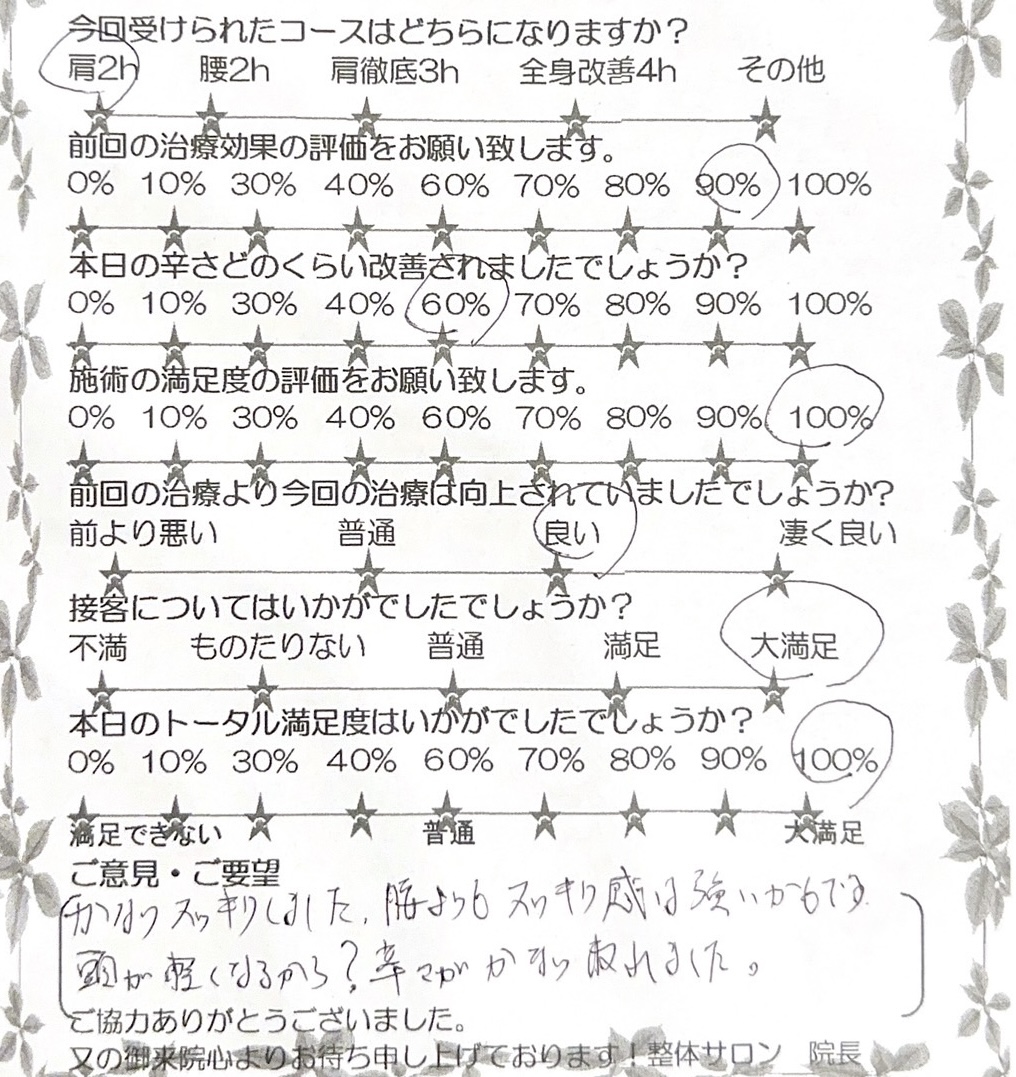 今回受けられたコースはどちらになりますか？
肩2h 腰2h 肩徹底3h 全身改善4h その他
前回の治療効果の評価をお願い致します。
0% 10% 30% 40% 60% 70% 80% 90% 100%
本日の辛さどのくらい改善されましたでしょうか？
0% 10% 30% 40% 60% 70% 80% 90% 100%
施術の満足度の評価をお願い致します。
0% 10% 30% 40% 60% 70% 80% 90% 100%
前回の治療より今回の治療は向上されていましたでしょうか？
前より悪い 普通 良い 凄く良い
接客についてはいかがでしたでしょうか？
不満 ものたりない 普通 満足 大満足
本日のトータル満足度はいかがでしたでしょうか？
0% 10% 30% 40% 60% 70% 80% 90% 100%
満足できない 普通 大満足
ご意見・ご要望
かなりスッキリしました、腰よりもスッキリ感は強いかもです
頭が軽くなるから？辛さがかなり取れました。
ご協力ありがとうございました。
又の御来院心よりお待ち申し上げております！整体サロン 院長